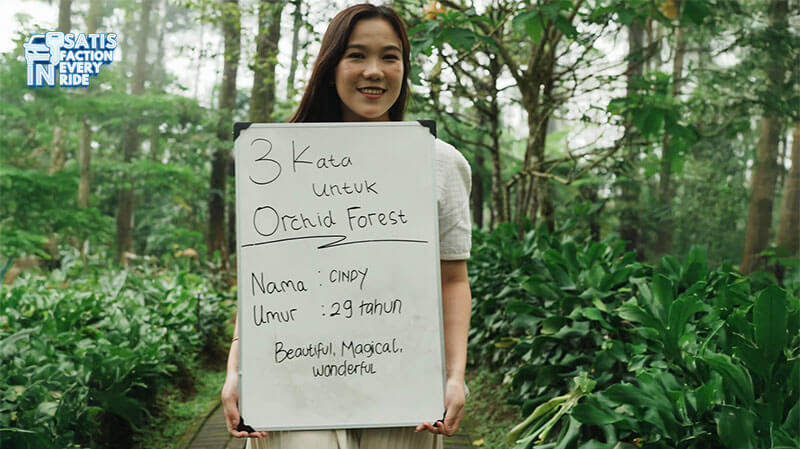 SATIS
FACTION
IN EVERY
RIDE
3 Kata
untuk
Orchid Forest
Nama : CINDY
Umur : 29 tahun
Beautiful, Magical,
wonderful